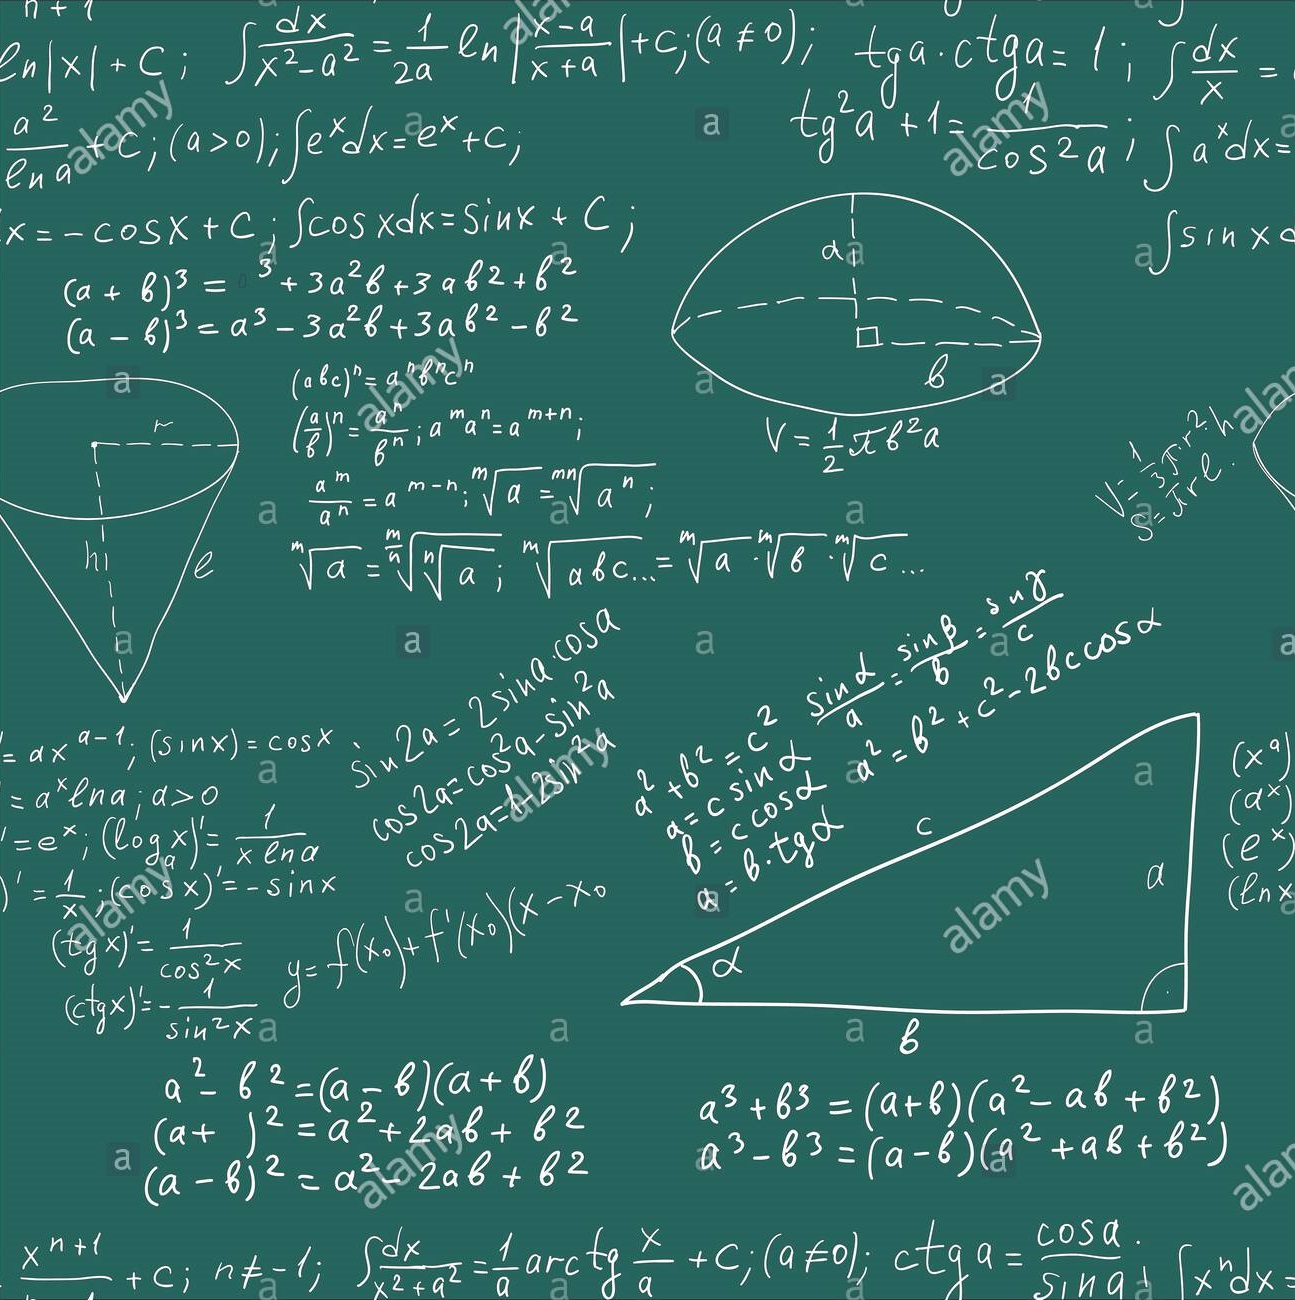 n + 1
ln|x| + C ; ∫dx/(x²-a²) = 1/2a ln|(x-a)/(x+a)| +C;(a≠0);
tga·ctga= 1 ; ∫dx/x =
a²/ln a +C ; (a>0); ∫eˣdx=eˣ+C;
tg²a +1= 1/cos²a ; ∫aˣdx=
x = -cosx + C ; ∫cosxdx=sinx + C ;
∫sin x d
(a + b)³ = ³ +3a²b+3ab2+b²
(a - b)³ = a³ -3a²b+3ab² -b²
a
b
V = 1/2 πb²a
r
h
l
(abc)ⁿ= aⁿbⁿcⁿ
(a/b)ⁿ= aⁿ/bⁿ ; aᵐaⁿ=aᵐ⁺ⁿ;
aᵐ/aⁿ = a ᵐ⁻ⁿ; ᵐ√a = ᵐⁿ√aⁿ ;
ᵐ√a = ᵐ/ⁿ√ⁿ√a ; ᵐ√abc... = ᵐ√a · ᵐ√b · ᵐ√c ...
V= 1/3 πr²h
S=πrl.
sin2a= 2sina·cosa
cos2a=cos²a-sin²a
cos2a=1-2sin²a
sinα/a = sinβ/b = sinγ/c
a² = b² + c² -2bccosα
a² + b² = c²
a= c sinα
b = c cosα
a = b·tgα
c
a
α
b
= ax ᵃ⁻¹; (sinx)= cosx
= aˣlna; a>0
' =eˣ; (logₐx)'= 1/(x lna)
)' = 1/x ;(cosx)'= -sinx
(tgx)'= 1/cos²x
(ctgx)'=- 1/sin²x
y= f(x₀)+f'(x₀)(x-x₀
(xᵃ)
(aˣ)
(eˣ)
(lnx
a²- b² =(a - b)(a + b)
(a+ )² = a²+2ab+ b²
(a - b)² = a² - 2ab + b²
a³ + b³ = (a+b)(a²- ab + b²)
a³ - b³ = (a-b)(a² + ab + b²)
xⁿ⁺¹/n+1 + C; n≠-1; ∫dx/(x²+a²) = 1/a arctg x/a + C;(a≠0); ctga= cosa/sina ; ∫xⁿdx=
alamy
alamy
alamy
alamy
alamy
alamy
alamy
alamy
alamy
alamy